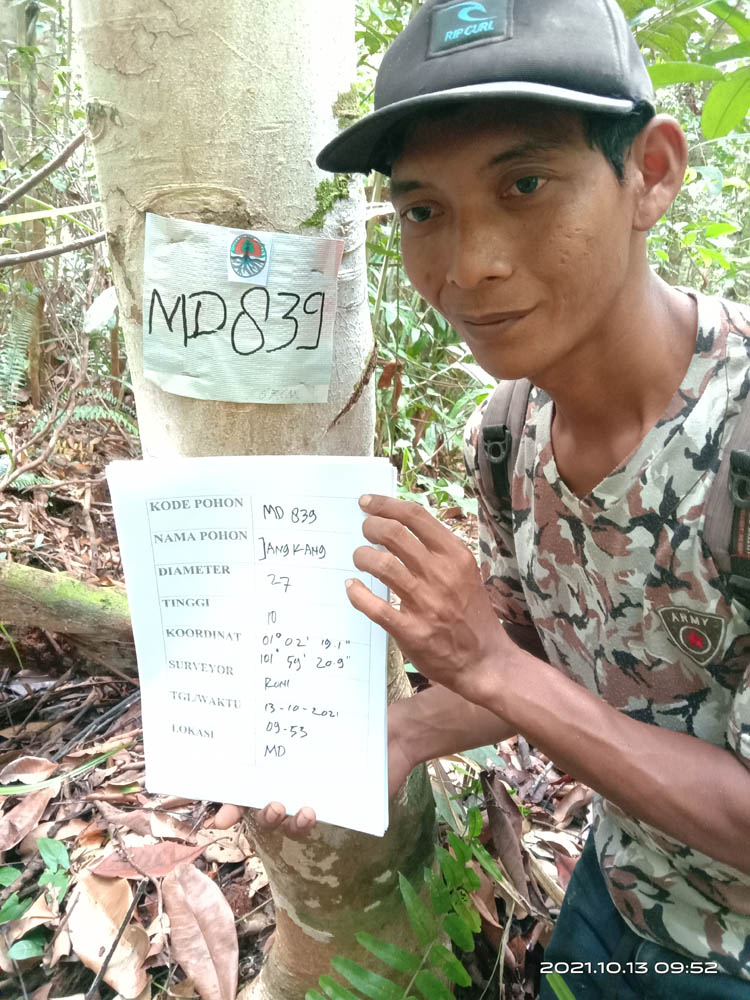 RIP CURL
MD839
KODE POHON MD 839
NAMA POHON JANGKANG
DIAMETER 27
TINGGI 10
KOORDINAT 01° 02' 19.1"
101° 59' 20.9"
SURVEYOR RONI
TGL/WAKTU 13-10-2021
09-53
LOKASI MD
ARMY
2021.10.13 09:52